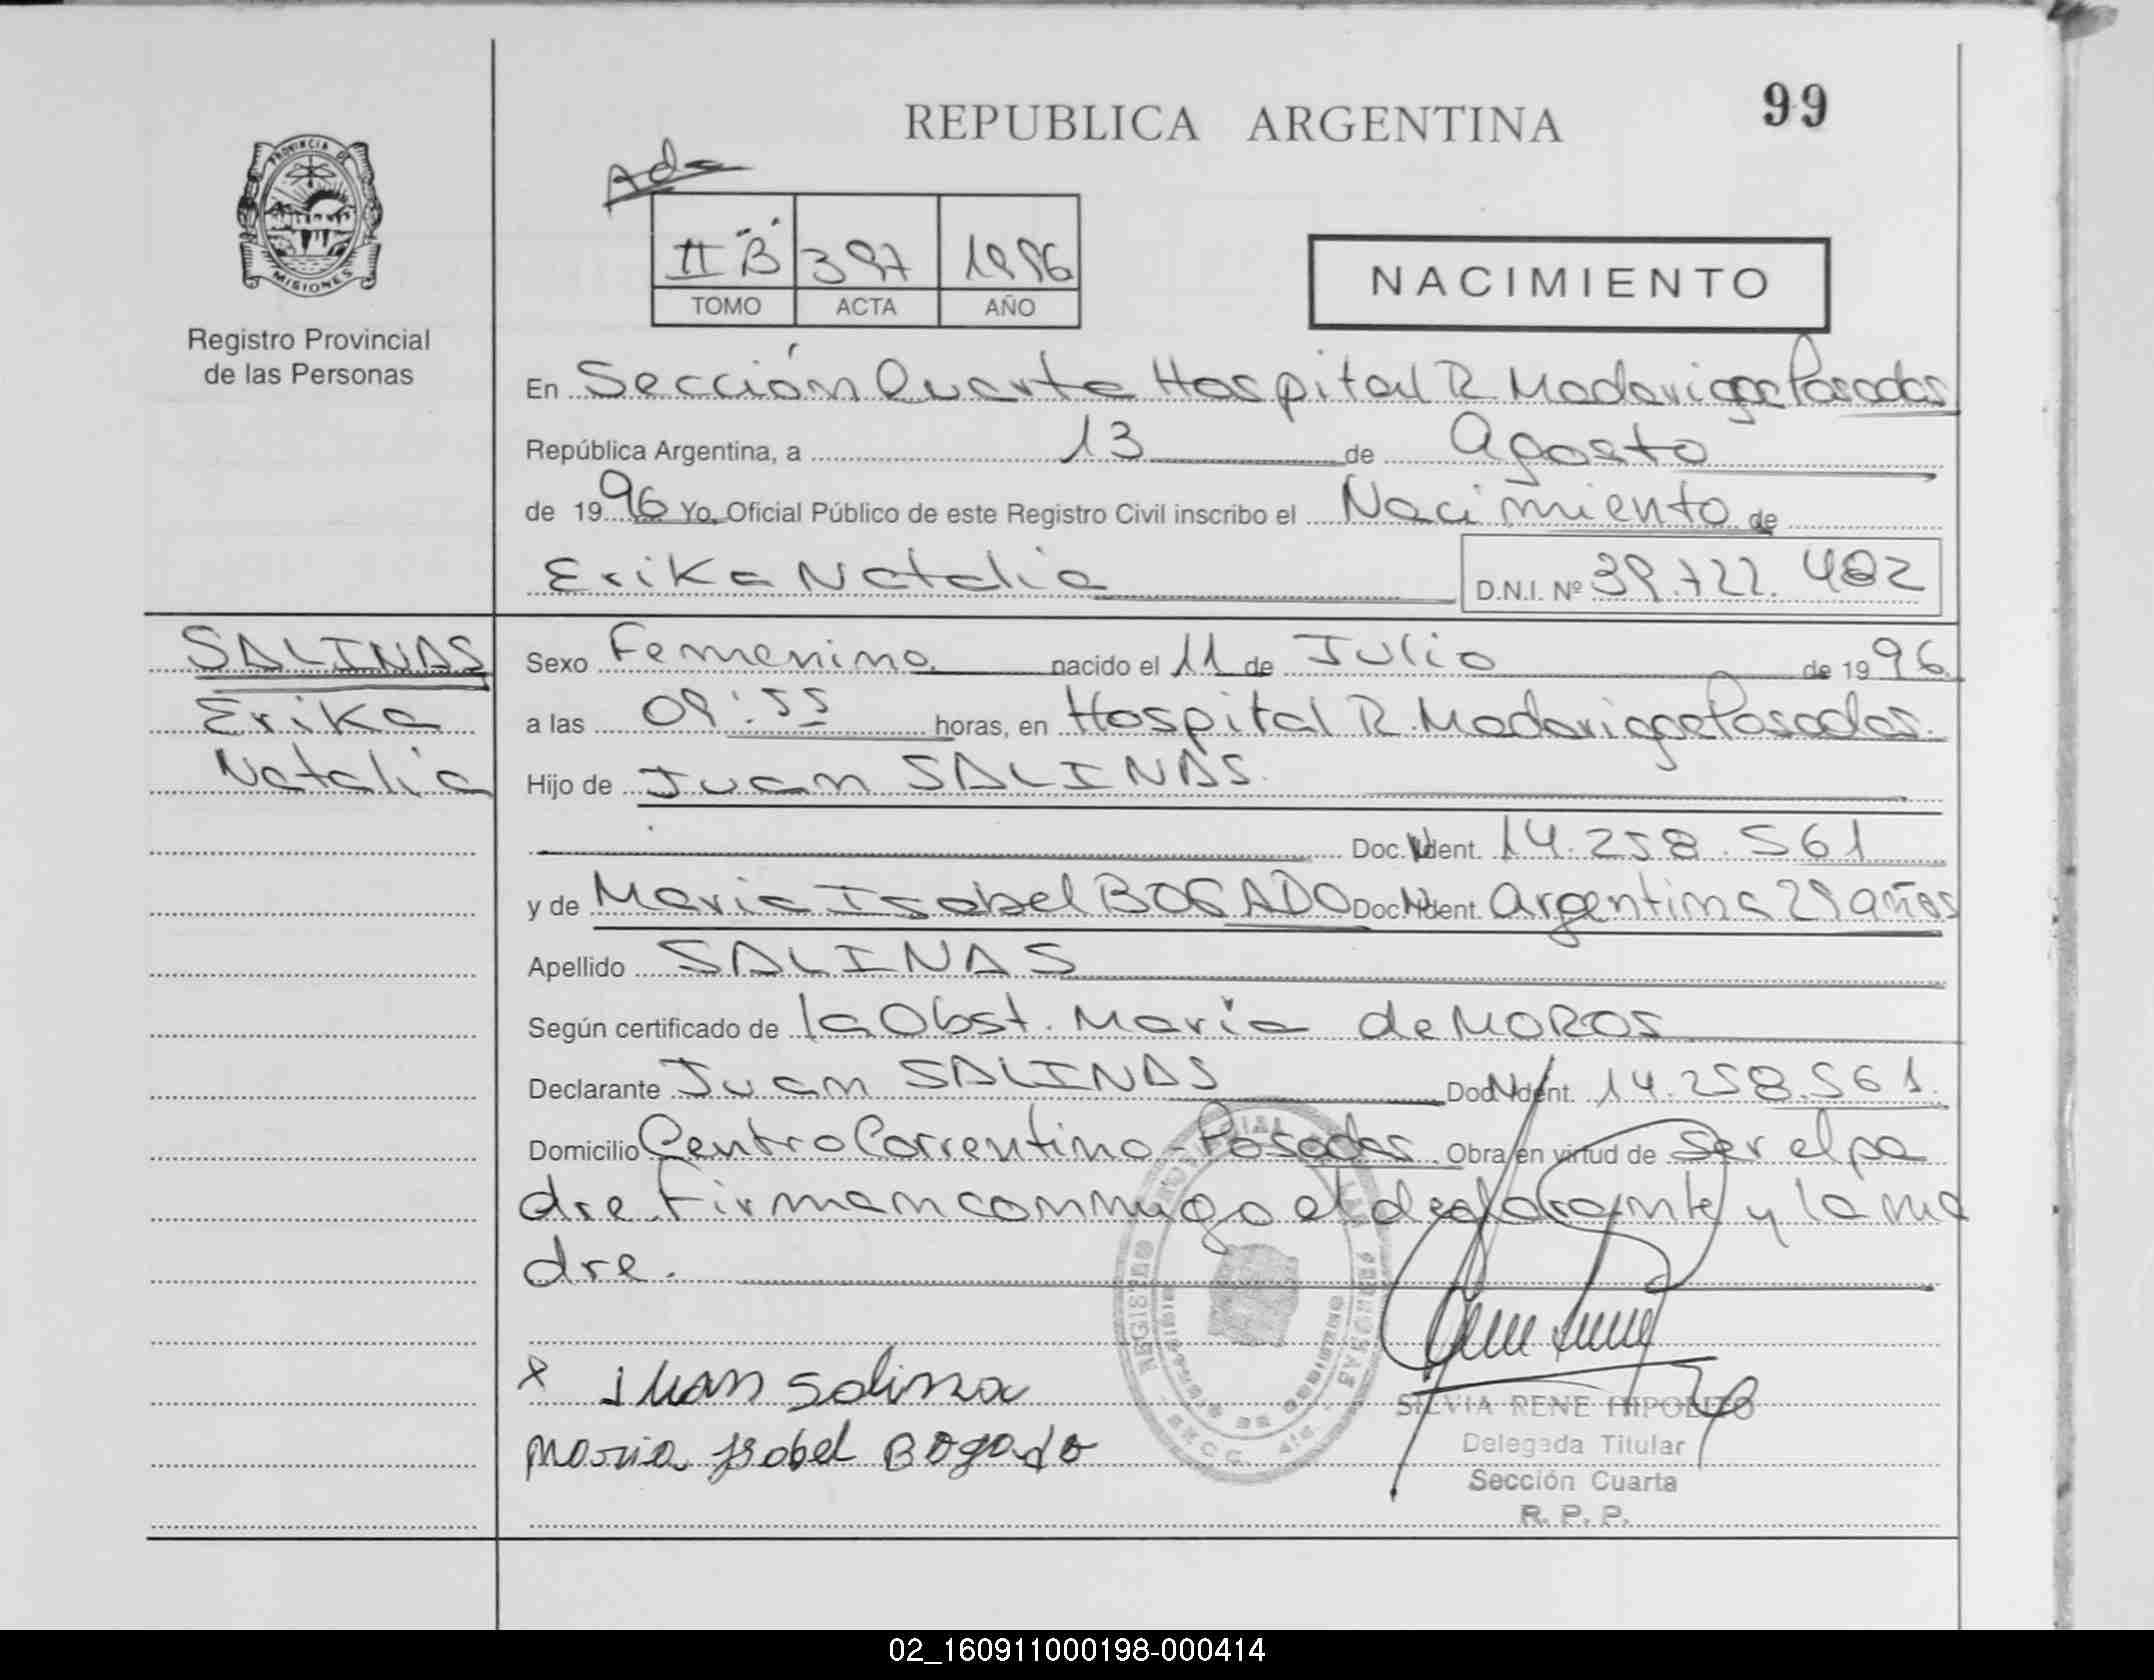 REPUBLICA ARGENTINA
99
PROVINCIA DE
MISIONES
Registro Provincial
de las Personas
Ada
II "B" 397 1996
TOMO ACTA AÑO
NACIMIENTO
En Sección Cuarta Hospital R Madariaga Posadas
República Argentina, a 13 de Agosto
de 1996 Yo, Oficial Público de este Registro Civil inscribo el Nacimiento de
Erika Natalia D.N.I. Nº 39.722.482
SALINAS
Erika
Natalia
Sexo Femenino. nacido el 11 de Julio de 1996
a las 09:55 horas, en Hospital R. Madariaga Posadas.
Hijo de Juan SALINAS.
Doc. Ident. 14.258.561
y de Maria Isabel BOGADO Doc. Ident. Argentina 29 años
Apellido SALINAS
Según certificado de la Obst. María de MOROS
Declarante Juan SALINAS Doc. Ident. 14.258.561.
Domicilio Centro Correntino - Posadas. Obra en virtud de ser el pa
dre. Firman conmigo el declarante y la ma
dre.
x Juan Salina
Maria Isabel Bogado
REGISTRO PROVINCIAL DE LAS PERSONAS
SECC. 4ta.
SILVIA RENE HIPOLITO
Delegada Titular
Sección Cuarta
R. P. P.
02_160911000198-000414